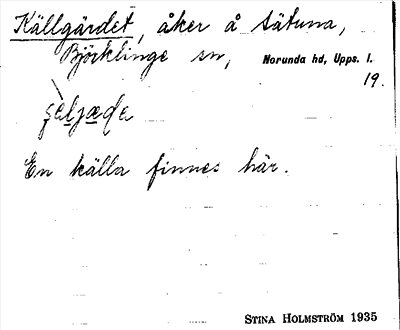 Källgärdet, åker å Sätuna,
Björklinge sn, Norunda hd, Upps. l.
19.
En källa finnes här.
STINA HOLMSTRÖM 1935